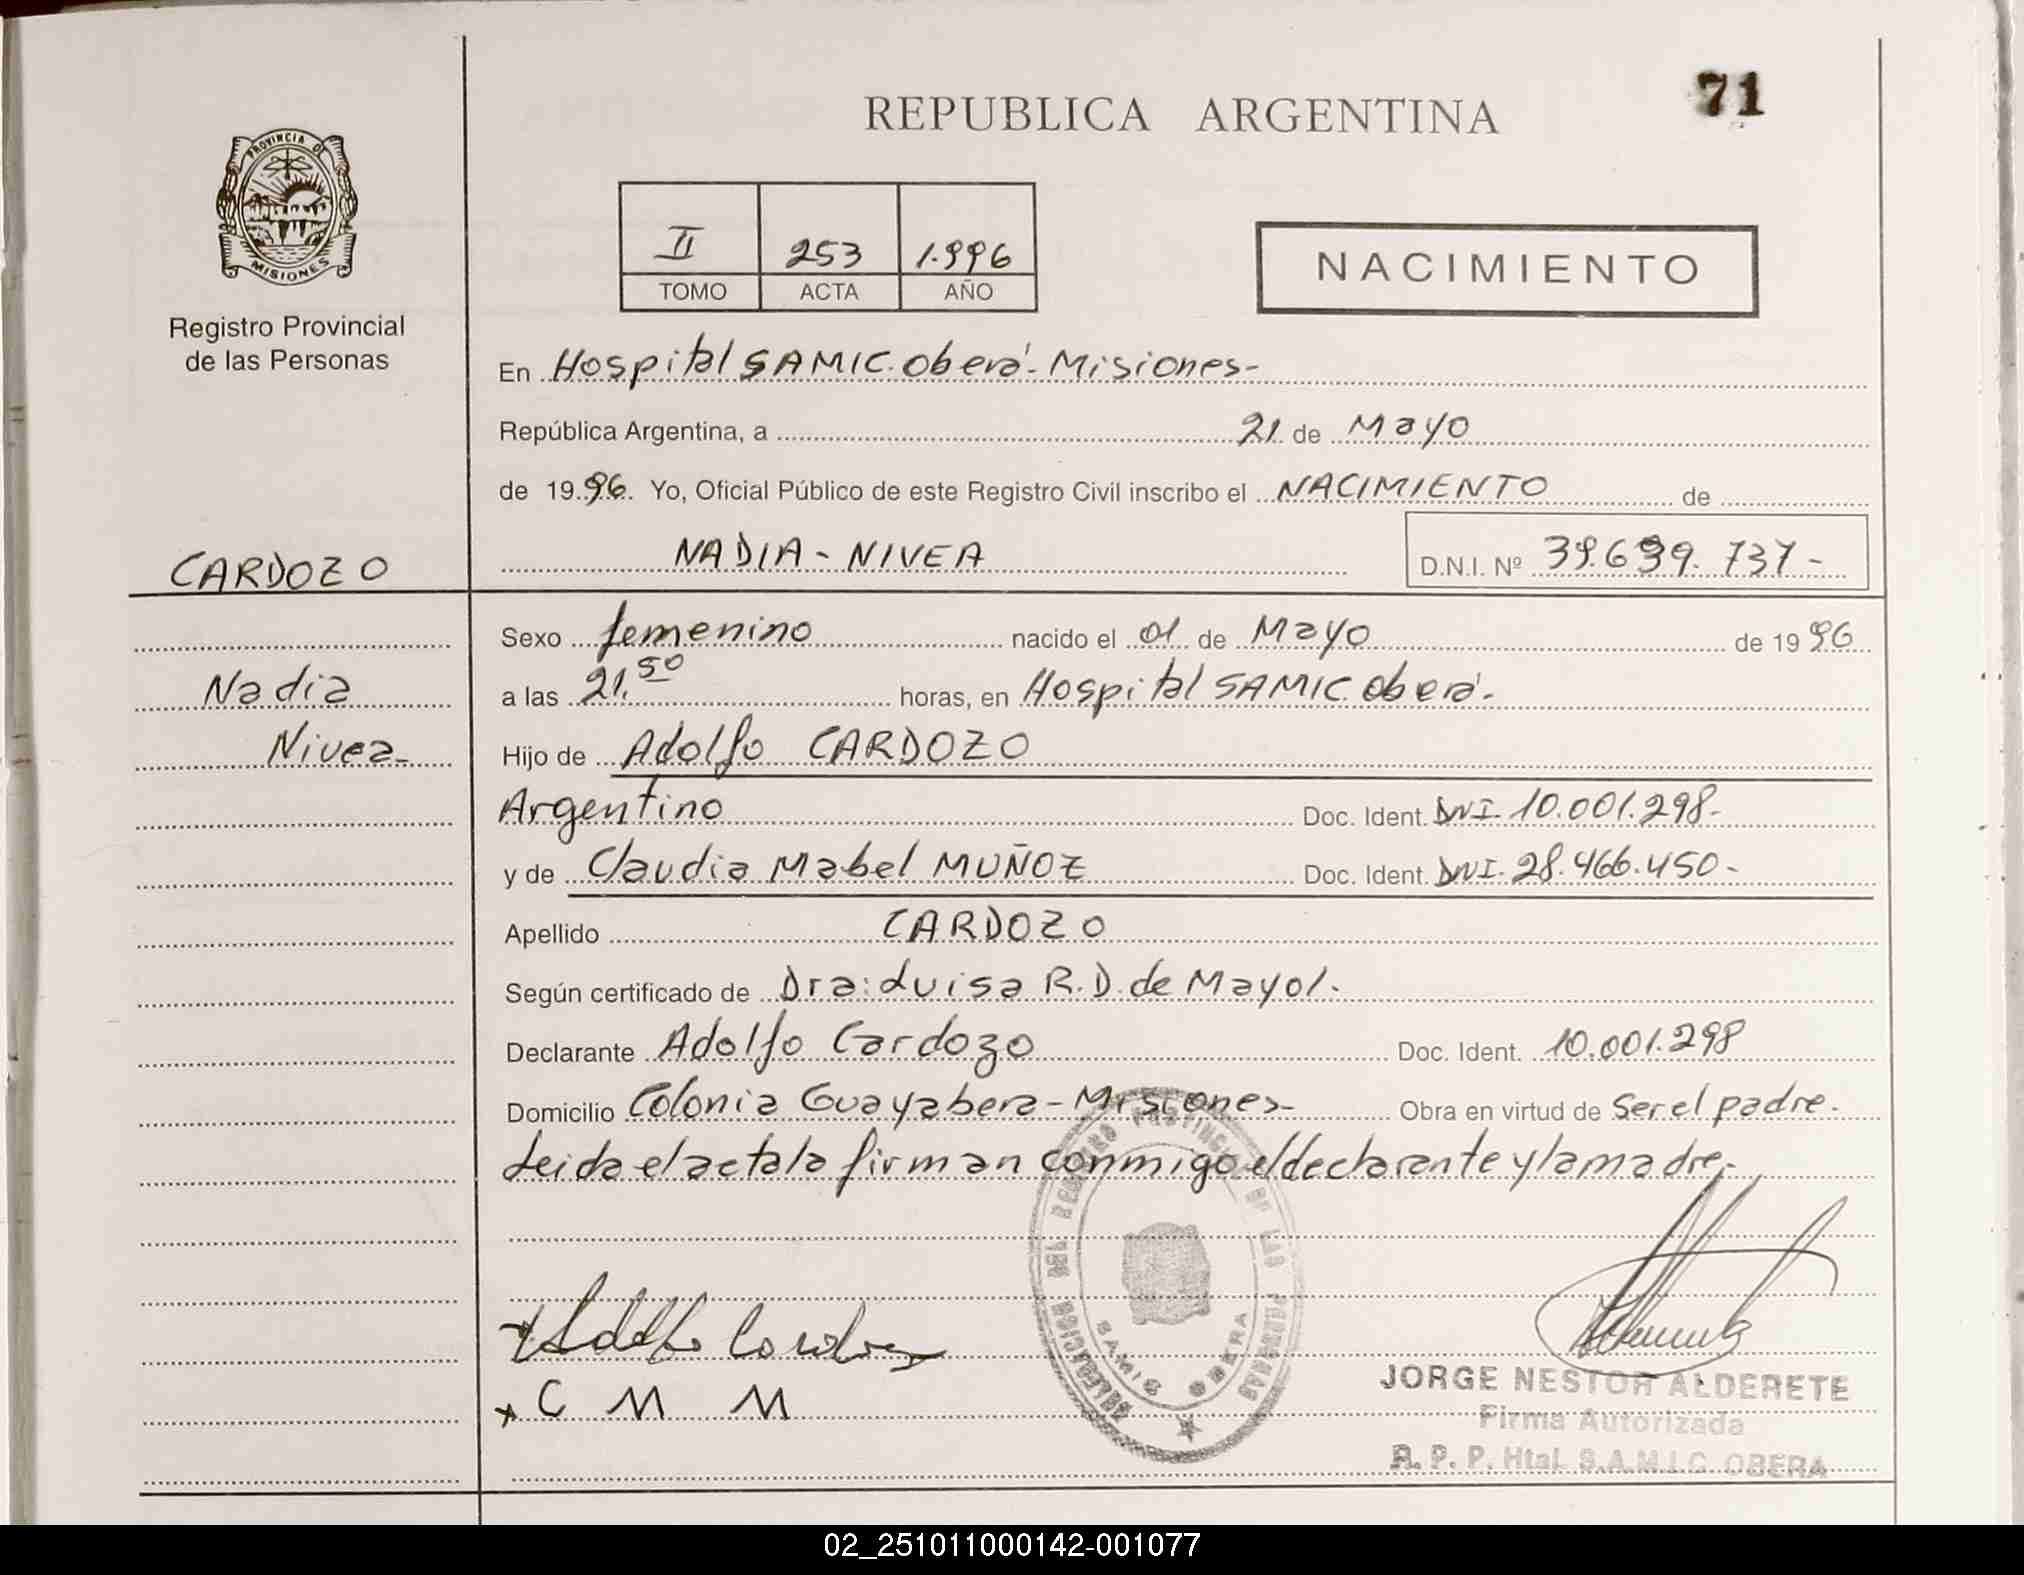 71
REPUBLICA ARGENTINA
PROVINCIA DE
MISIONES
Registro Provincial
de las Personas
II 253 1.996
TOMO ACTA AÑO
NACIMIENTO
En Hospital SAMIC. Oberá- Misiones-
República Argentina, a 21 de Mayo
de 1996. Yo, Oficial Público de este Registro Civil inscribo el NACIMIENTO de
CARDOZO
NADIA - NIVEA D.N.I. Nº 39.639.737-
Sexo femenino nacido el 01 de Mayo de 1996
Nadia
a las 21.50 horas, en Hospital SAMIC. Oberá-
Nivea-
Hijo de Adolfo CARDOZO
Argentino Doc. Ident. DNI. 10.001.298-
y de Claudia Mabel MUÑOZ Doc. Ident. DNI. 28.466.450-
Apellido CARDOZO
Según certificado de Dra: Luisa R.D. de Mayol.
Declarante Adolfo Cardozo Doc. Ident. 10.001.298
Domicilio Colonia Guayabera - Misiones- Obra en virtud de Ser el padre.
Leida el acta la firman conmigo el declarante y la madre,-
DELEGACION DEL REGISTRO PROVINCIAL DE LAS PERSONAS
SAMIC OBERA
x Adolfo Cardozo
x C M M
JORGE NESTOR ALDERETE
Firma Autorizada
R. P. P. Htal. S.A.M.I.C. OBERA
02_251011000142-001077